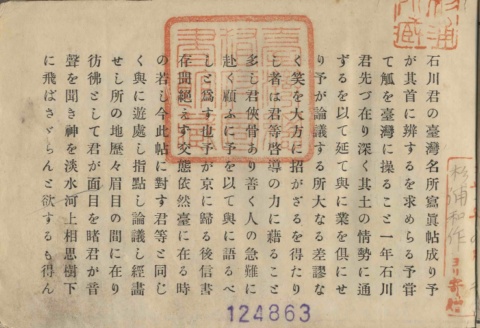 石川君の臺灣名所寫眞帖成り予
が其首に辨するを求めらる予嘗
て觚を臺灣に操ること一年石川
君先づ在り深く其土の情勢に通
ずるを以て延て與に業を俱にせ
り予が論議する所大なる差謬な
く笑を大方に招がざるを得たり
し者は君等啓導の力に藉ること
多し君俠骨あり善く人の急難に
赴く顧ふに予を以て與に語るべ
しと爲す也予が京に歸る後信書
存問絶えず交態依然臺に在る時
の若し今此帖に對す君等と同じ
く與に遊處し指點し論議し經畫
せし所の地歷々眉目の間に在り
彷彿として君が面目を睹君が音
聲を聞き神を淡水河上相思樹下
に飛ばさゞらんと欲するも得ん
杉浦和作
ヨリ寄贈
124863